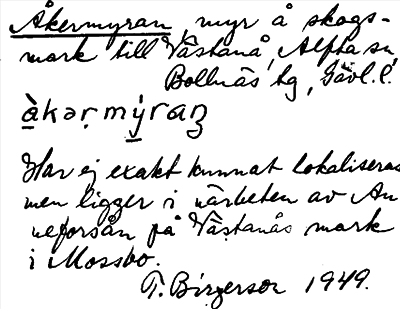 Åkermyran myr å skogs-
mark till Västanå, Alfta sn
Bollnäs tg, Gävl.l.
àkərmýraṉ
Har ej exakt kunnat lokaliseras
men ligger i närheten av An
neforsån på Västanås mark
i Mossbo.
T. Birgerson 1949.